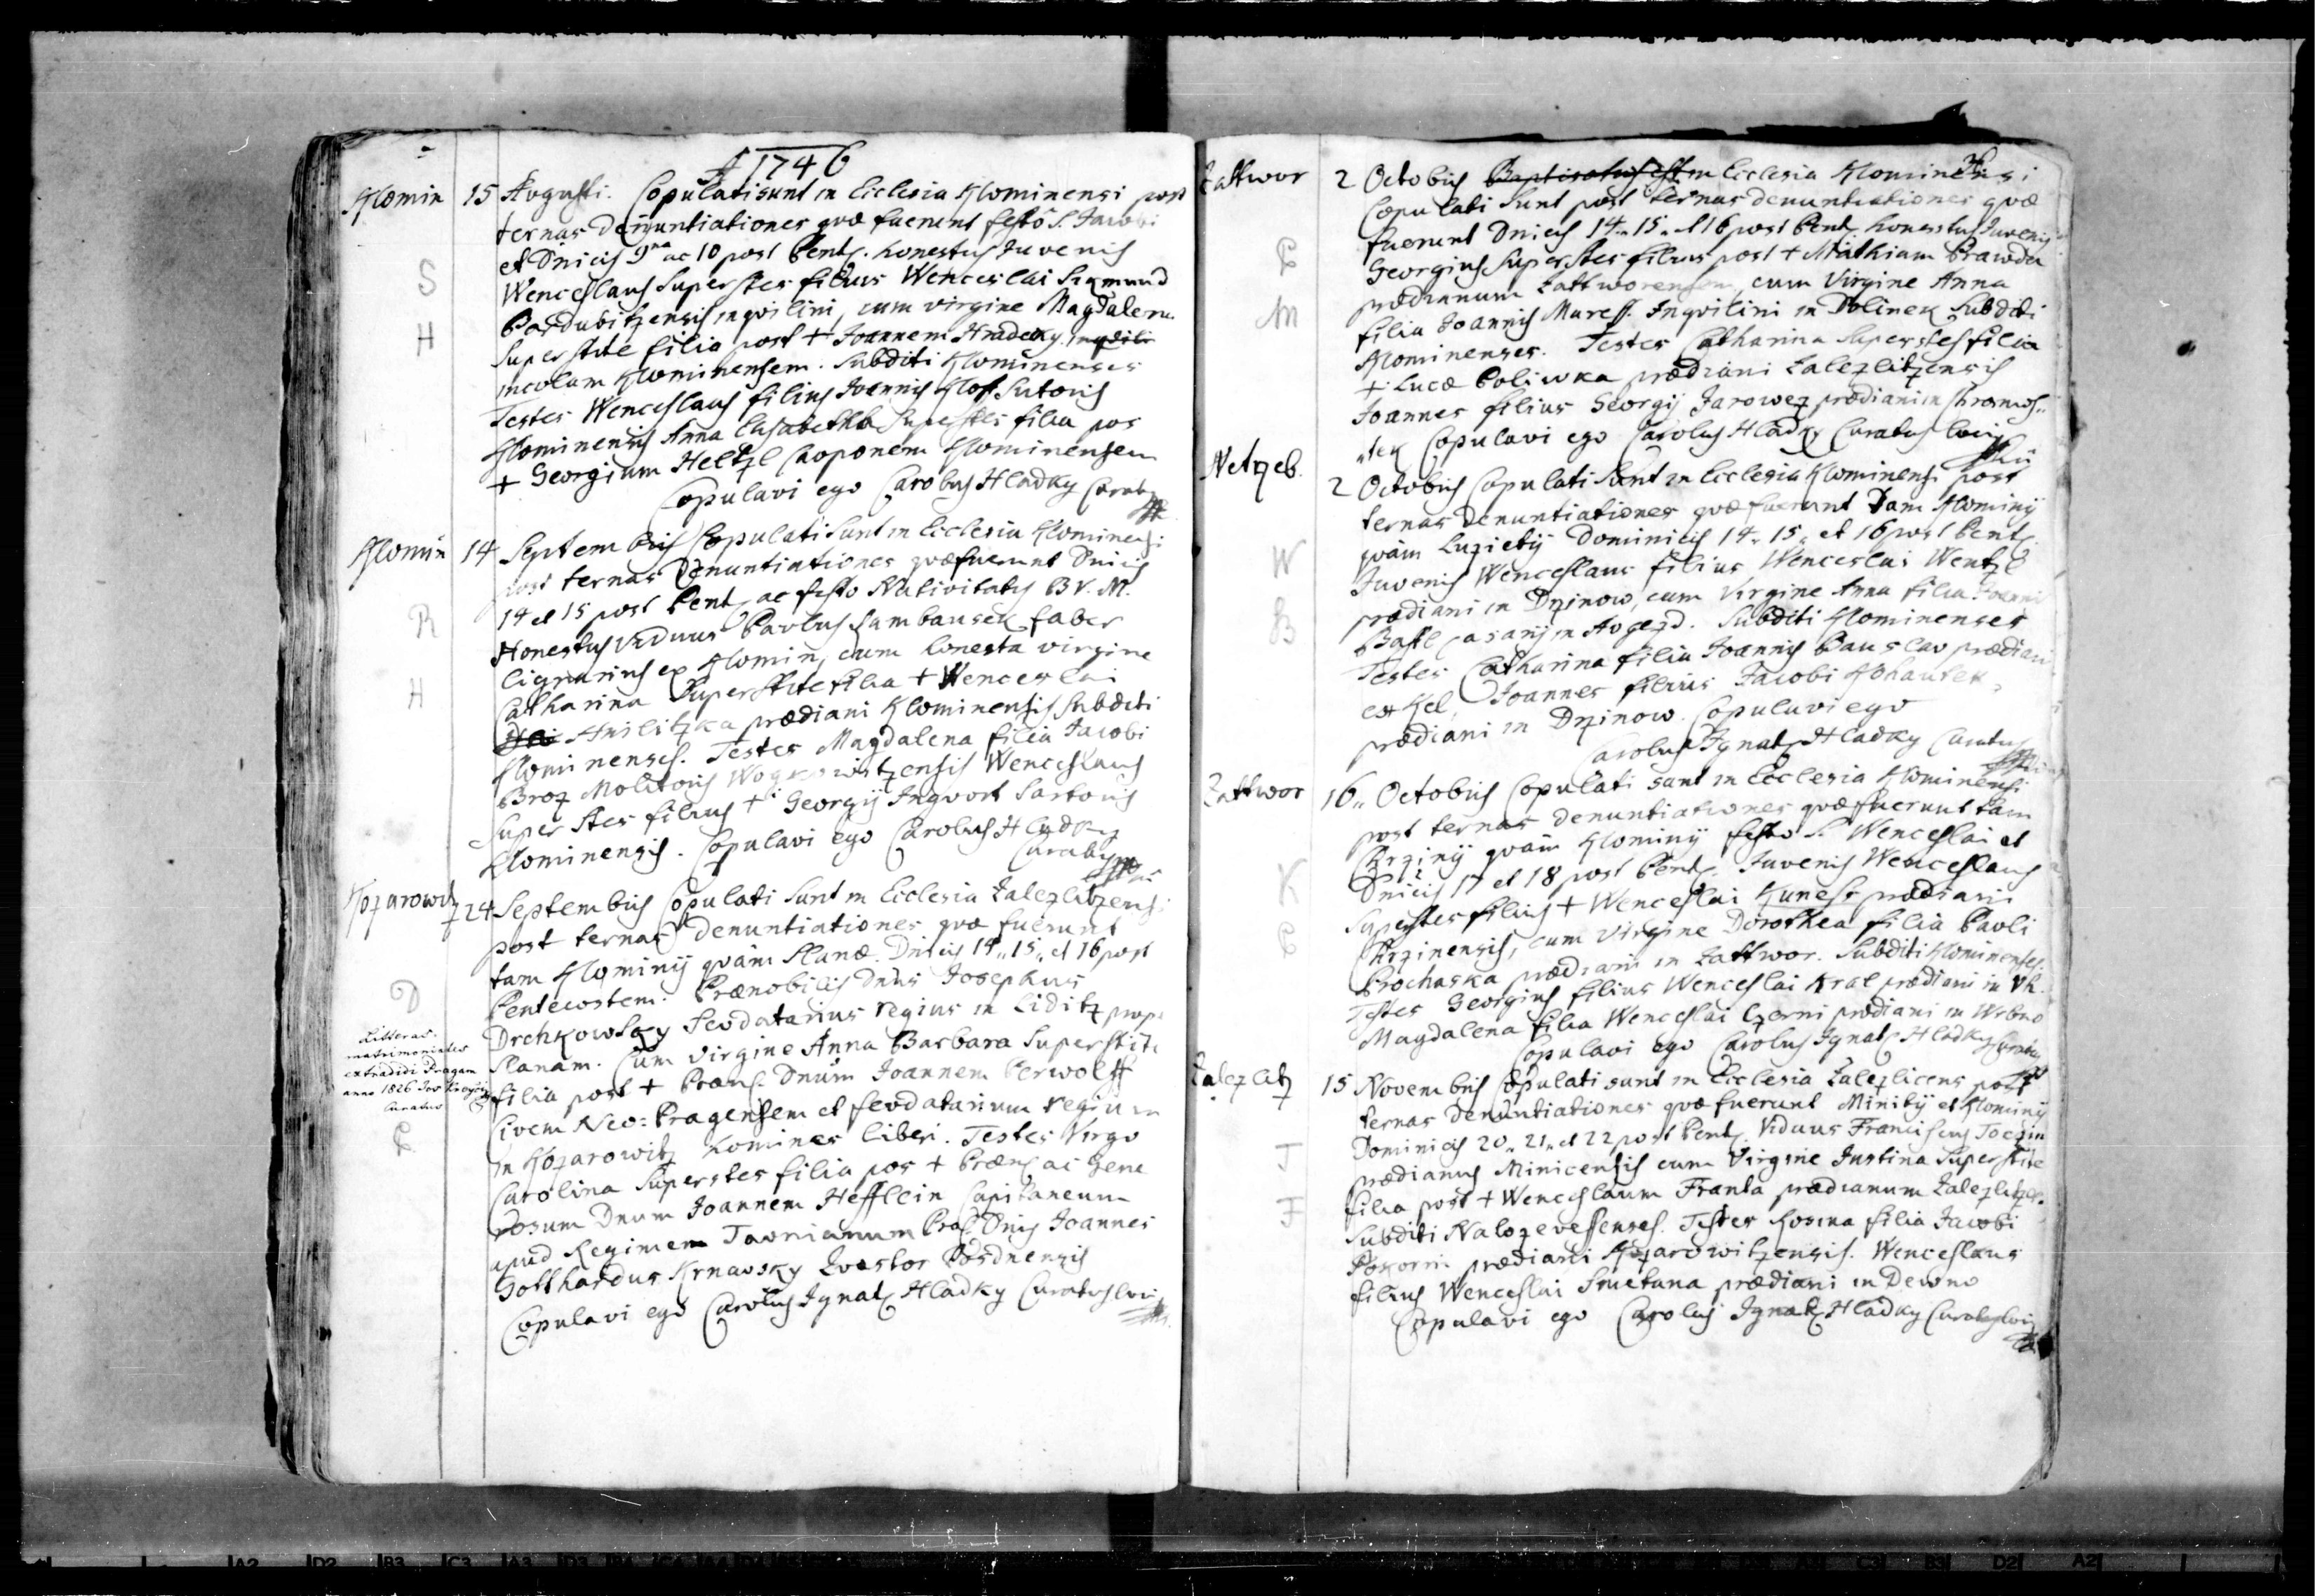 A 1746
Klomin 15 Augusti. Copulati sunt in Ecclesia Klominensi post
ternas denuntiationes quæ fuerunt festo S. Jacobi
et Dnicis 9na ac 10 post Pent. honestus Juvenis
S Wenceslaus Superstes filius Wenceslai Sigmund
Pardubitzensis inquilini, cum virgine Magdalena
H Superstite filia post + Joannem Hradecky
incolam Klominensem. Subditi Klominenses
Testes Wenceslaus filius Joannis Sutoris
Klominensis Anna Elisabetha Superstes filia pos
+ Georgium Heltzl Klominensem
Copulavi ego Carolus Hladky Curatus
Klomin 14 Septembris Copulati Sunt in Ecclesia Klominensi
post ternas Denuntiationes quæ fuerunt Dnicis
14 et 15 post Pent. ac festo Nativitatis B.V.M.
R Honestus Viduus Paulus faber
lignarius ex Klomin, cum honesta virgine
H Catharina Superstite filia + Wenceslai
prædiani Klominensis Subditi
Klominenses. Testes Magdalena filia Jacobi
Broz Molitoris Wenceslaus
Superstes filius + Georgij Ingvort Sartoris
Klominensis. Copulavi ego Carolus Hladky
Curatus
Kozarowitz 24 Septembris Copulati Sunt in Ecclesia Zalezlitzensi
post ternas denuntiationes quæ fuerunt
tam Klominij quàm Slanæ. Dnicis 14. 15. et 16 post
D Pentecostem. Prænobilis Dnus Josephus
Drchkowsky Feodatarius regius in Liditz prope
Litteras
matrimoniales
extradidi Pragam
anno 1826
Curatus
Slanam. Cum virgine Anna Barbara Superstite
filia post + Dnum Joannem Perwolff
Civem Neo-Pragensem et feodatarium regium
P in Kozarowitz homines liberi. Testes Virgo
Carolina Superstes filia pos + Præn. ac Gene
rosum Dnum Joannem Hefflein Capitaneum
apud Regimen Dnus Joannes
Gotthardus Krnawsky
Copulavi ego Carolus Ignatz Hladky Curatus loci
36
Zattwor 2 Octobris Baptisatus est in Ecclesia Klominensi
Copulati Sunt post ternas denuntiationes quæ
fuerunt Dnicis 14. 15. et 16 post Pent. honestus Juvenis
P Georgius Superstes filius post + Mathiam Prawda
prædianum Zattworensem, cum Virgine Anna
M filia Joannis Maress. Inquilini in Dolinek Subditi
Klominenses. Testes Catharina Superstes filia
+ Lucæ Poliwka prædiani Zalezlitzensis
Joannes filius Georgij Jarowez prædiani in
Copulavi ego Carolus Hladky Curatus loci
Netrzeb. 2 Octobris Copulati Sunt in Ecclesia Klominensi post
ternas denuntiationes quæ fuerunt tam Klominij
quàm Luzietij Dominicis 14. 15. et 16 post Pent.
W Juvenis Wenceslaus filius Wenceslai Wentzl
prædiani in Drzinow, cum Virgine Anna filia Joannis
B in Augezd. Subditi Klominenses
Testes Catharina filia Joannis prædiani
ex Kel, Joannes filius Jacobi
prædiani in Drzinow. Copulavi ego
Carolus Ignatz Hladky Curatus
Zattwor 16. Octobris Copulati sunt in Ecclesia Klominensi
post ternas denuntiationes quæ fuerunt tam
Chrzinij quàm Klominij festo S. Wenceslai et
K Dnicis 17 et 18 post Pent. Juvenis Wenceslaus
Superstes filius + Wenceslai Kunesz prædiani
P Chrzinensis, cum virgine Dorothea filia Pauli
Prochaska prædiani in Zattwor. Subditi Klominenses.
Testes Georgius filius Wenceslai Kral prædiani in Uh.
Magdalena filia Wenceslai Czerni prædiani in Wrbno
Copulavi ego Carolus Ignatz Hladky Curatus
Zalezlitz 15 Novembris Copulati sunt in Ecclesia Zalezlicens post
ternas denuntiationes quæ fuerunt Minitij et Klominij
J Dominicis 20. 21. et 22 post Pent. Viduus Franciscus Toczin
prædianus Minicensis cum Virgine Justina Superstite
F filia post + Wenceslaum Franta prædianum Zalezlitzen.
Subditi Nalozevessenses. Testes Rosina filia Jacobi
Pokorni prædiani Kozarowitzensis. Wenceslaus
filius Wenceslai Smetana prædiani in Dewno
Copulavi ego Carolus Ignatz Hladky Curatus loci